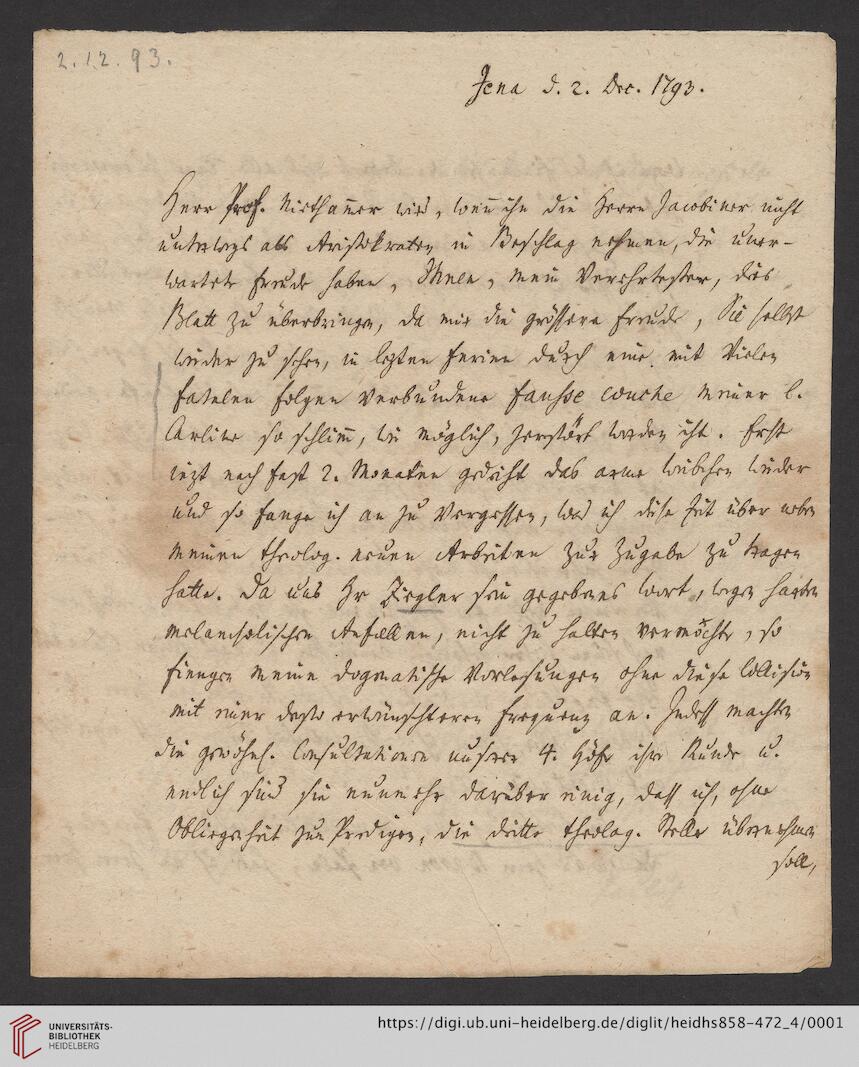 2.12.93.
Jena d. 2. Dec. 1793.
Herr Prof. Niethamer wird, wenn ihn die Herrn Jacobiner nicht
unterwegs als Aristokraten in Beschlag nehmen, die uner-
wartete Freude haben, Ihnen, mein Verehrtester, dies
Blatt zu überbringen, da mir die grössere Freude, Sie selbst
wieder zu sehen, in lezten Ferien durch eine mit vielen
fatalen Folgen verbundene fausse couche meiner l.
Carline so schlimm, wie möglich, zerstört worden ist. Erst
iezt nach fast 2. Monaten gedeiht das arme Weibchen wieder
und so fange ich an zu vergessen, was ich diese Zeit über neben
meinen theolog. neuen Arbeiten zur Zugabe zu tragen
hatte. Da uns Hr Ziegler sein gegebenes Wort, wegen harten
melancholischen Anfällen, nicht zu halten vermochte, so
fiengen meine dogmatische Vorlesungen ohne diese Collision
mit einer desto erwünschteren Frequenz an. Indess machten
die gewöhnl. Consultationen unserer 4. Höfe ihre Runde u.
endlich sind sie nunmehr darüber einig, dass ich, ohne
Obliegenheit zum Predigen, die dritte theolog. Stelle übernehmen
soll,
UNIVERSITÄTS-
BIBLIOTHEK
HEIDELBERG
https://digi.ub.uni-heidelberg.de/diglit/heidhs858-472_4/0001